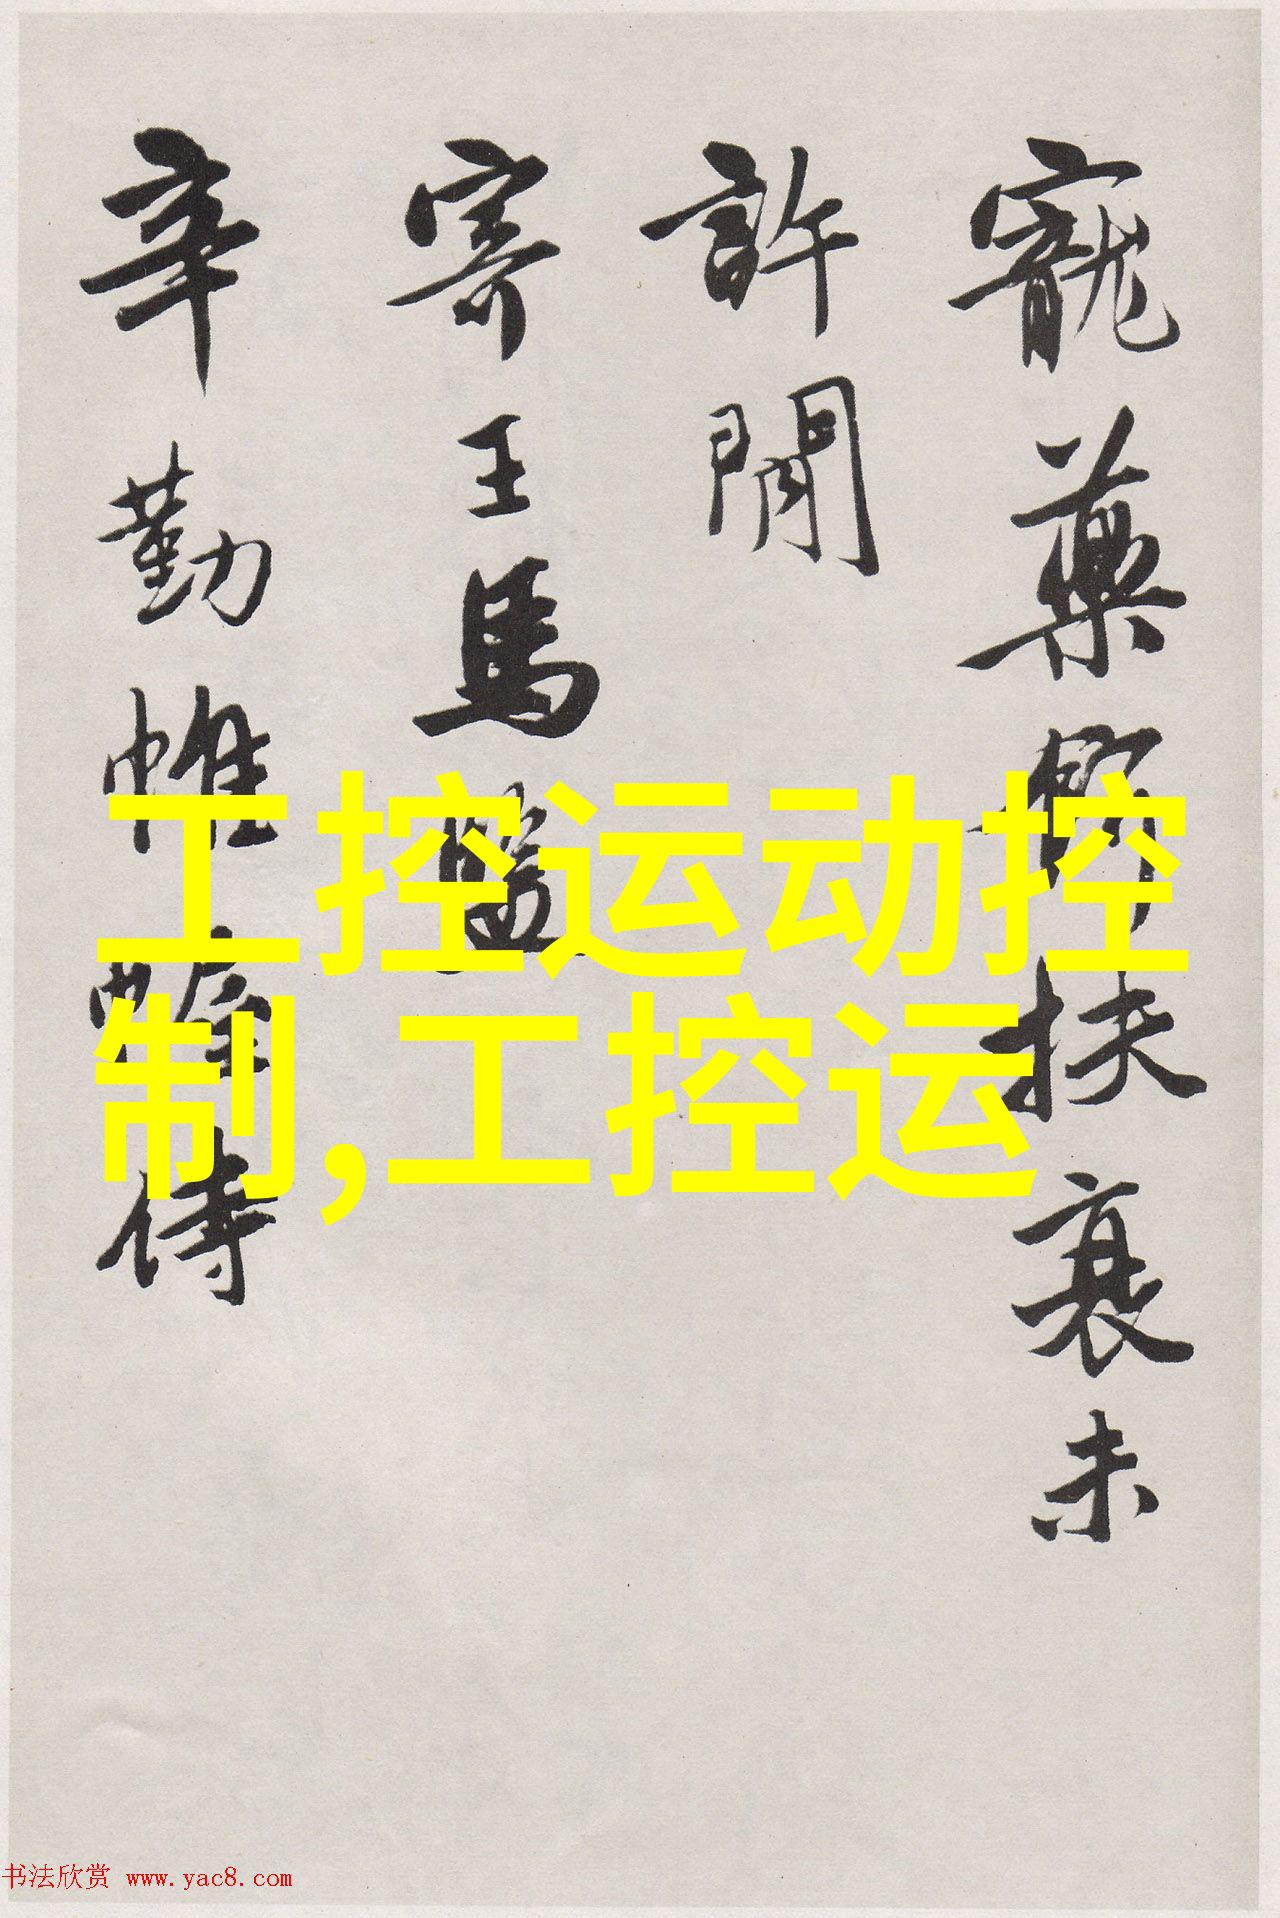 寵藥餌扶衰未
許閒
寄王馬鑒
辛勤帷幄侍
工控运动控
制,工控运
书法欣赏 www.yac8.com